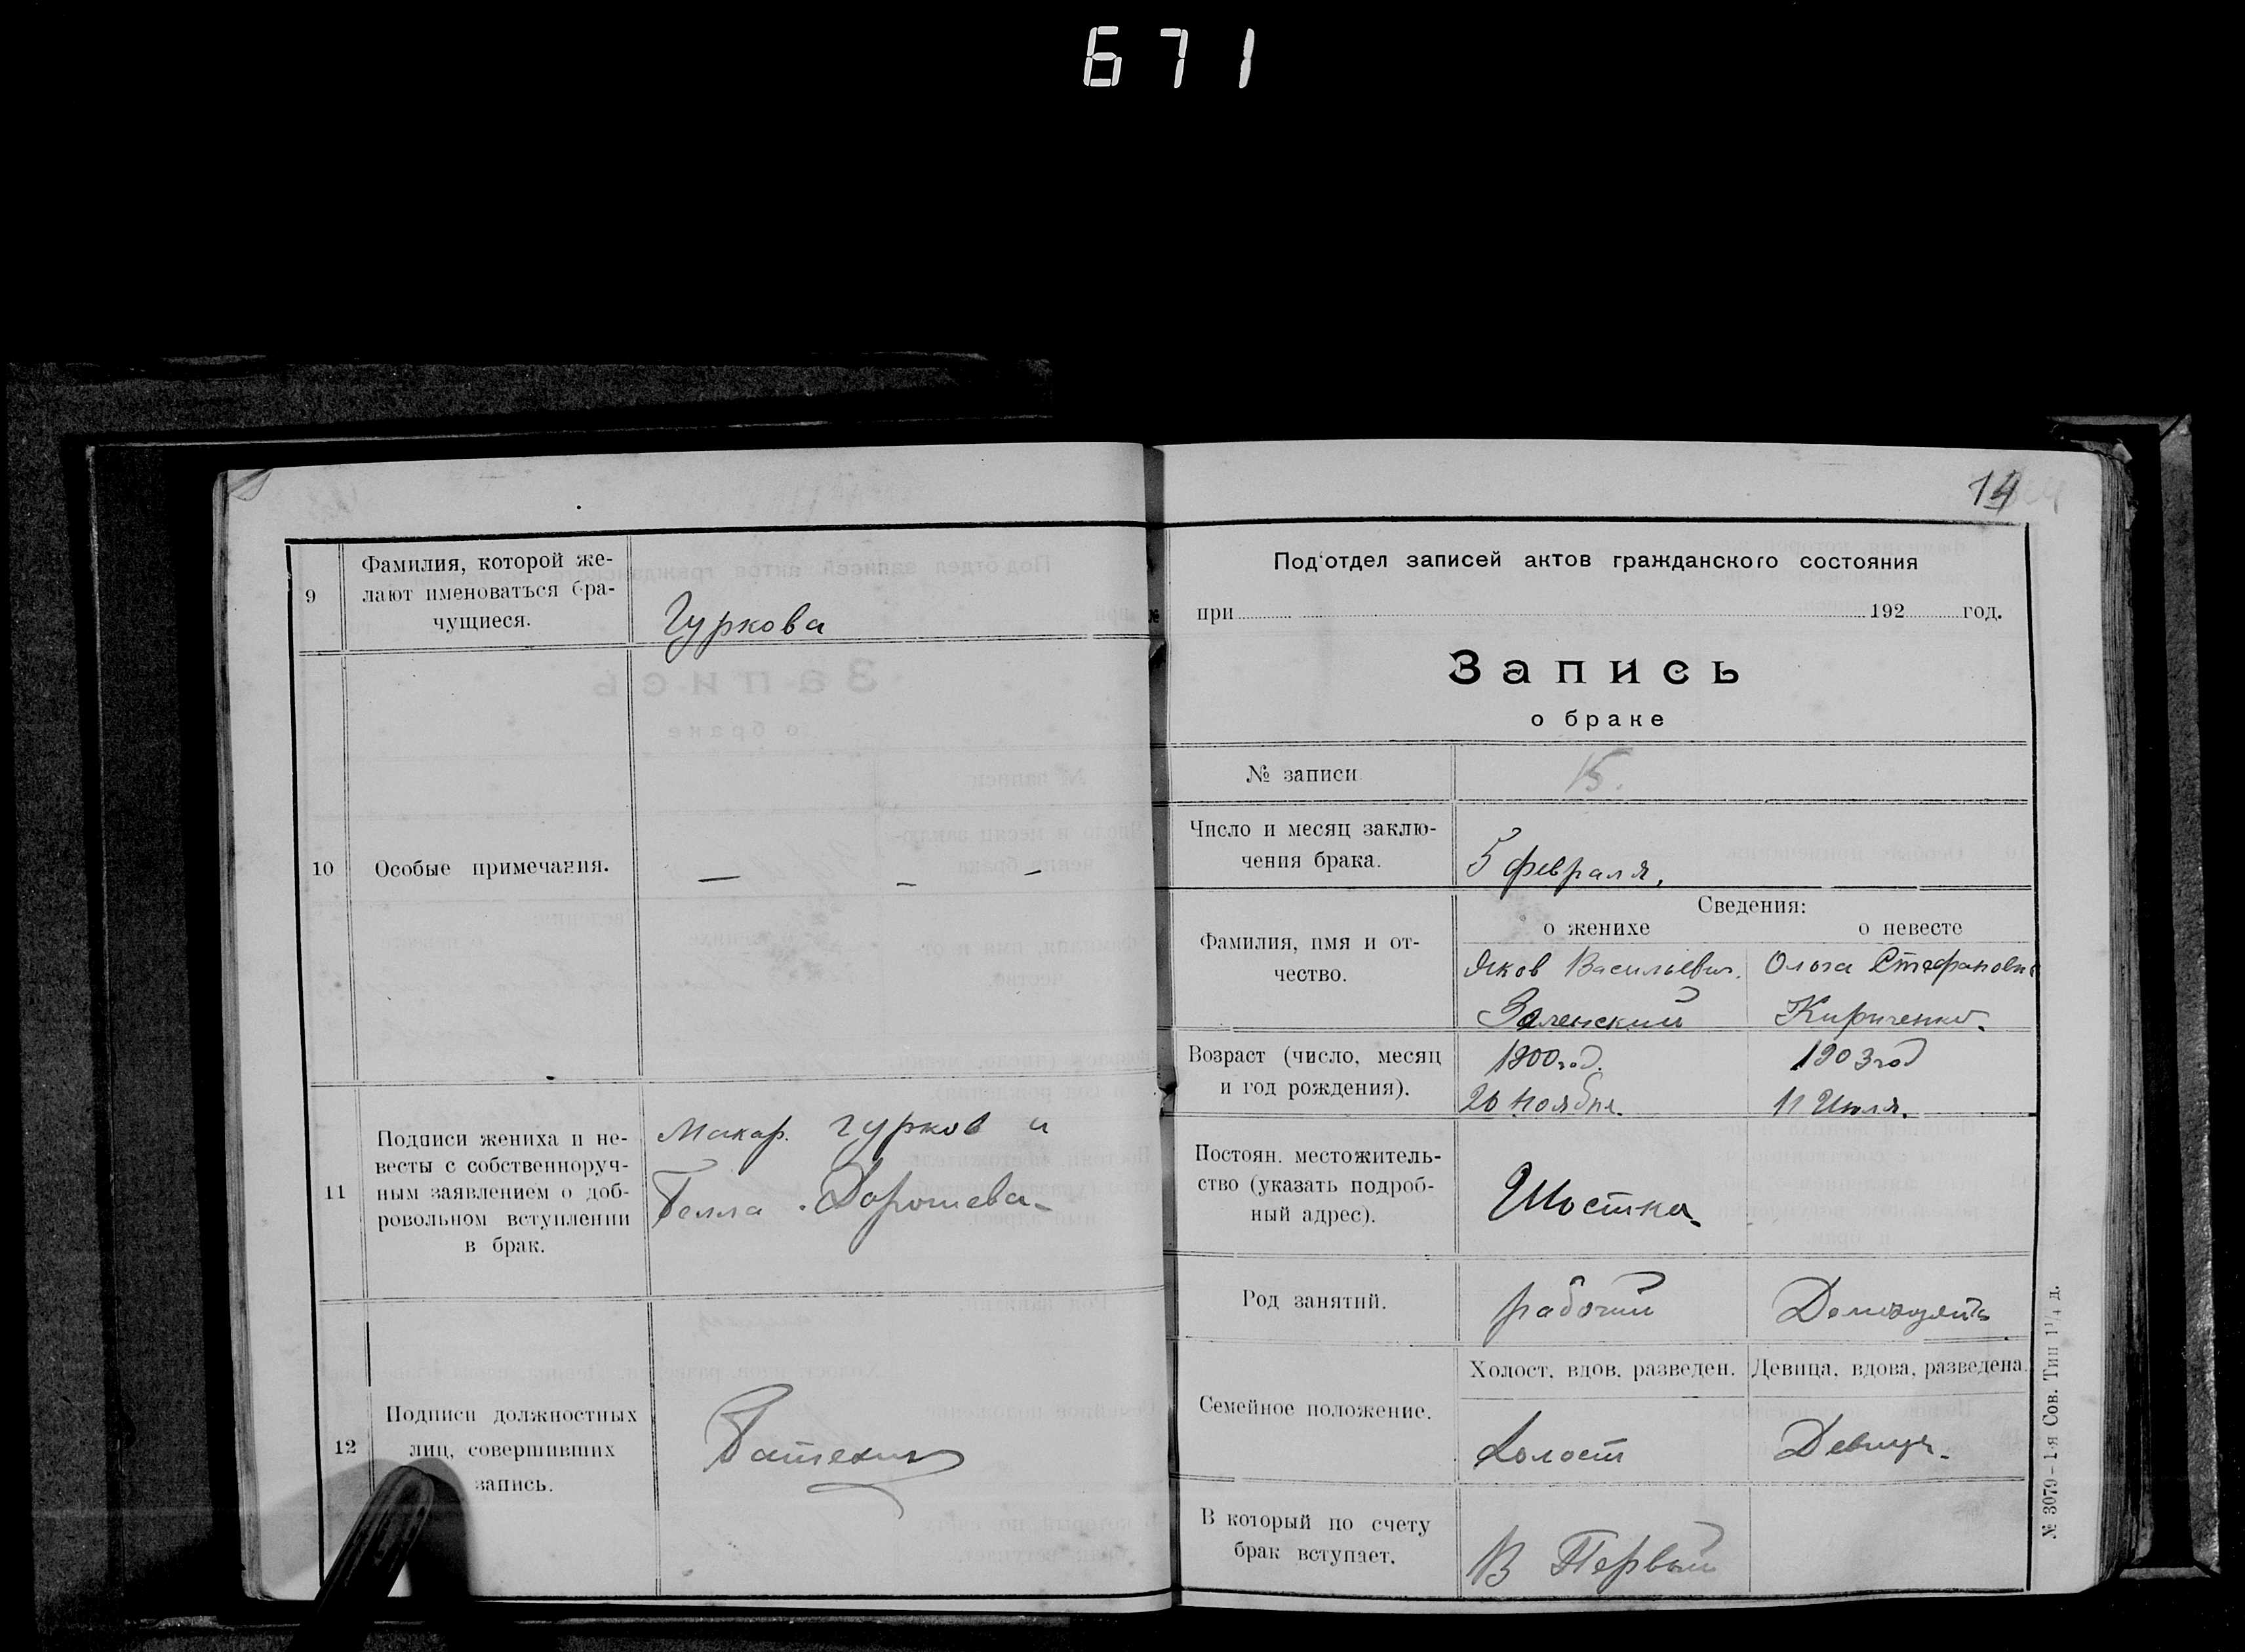 671
9
Фамилия, которой же-
лают именоваться бра-
чущиеся.
Гуркова
10
Особые примечания.
— — —
11
Подписи жениха и не-
весты с собственноруч-
ным заявлением о доб-
ровольном вступлении
в брак.
Макар. Гурков и
Дорошева
12
Подписи должностных
лиц, совершивших
запись.
14
Под'отдел записей актов гражданского состояния
при 192 год.
Запись
о браке
№ записи
15.
Число и месяц заклю-
чения брака.
5 февраля.
Сведения:
о женихе о невесте
Фамилия, имя и от-
чество.
Яков Васильевич. Ольга Стефановна
Зеленский Кириченко.
Возраст (число, месяц
и год рождения).
1900 год. 1903 год
26 ноября. 11 Июля.
Постоян. местожитель-
ство (указать подроб-
ный адрес).
Шостка
Род занятий.
рабочий
Семейное положение.
Холост, вдов, разведен. Девица, вдова, разведена.
Холост Девица.
В который по счету
брак вступает.
В Первый
№ 3079—1-я Сов. Тип 1¼ д.